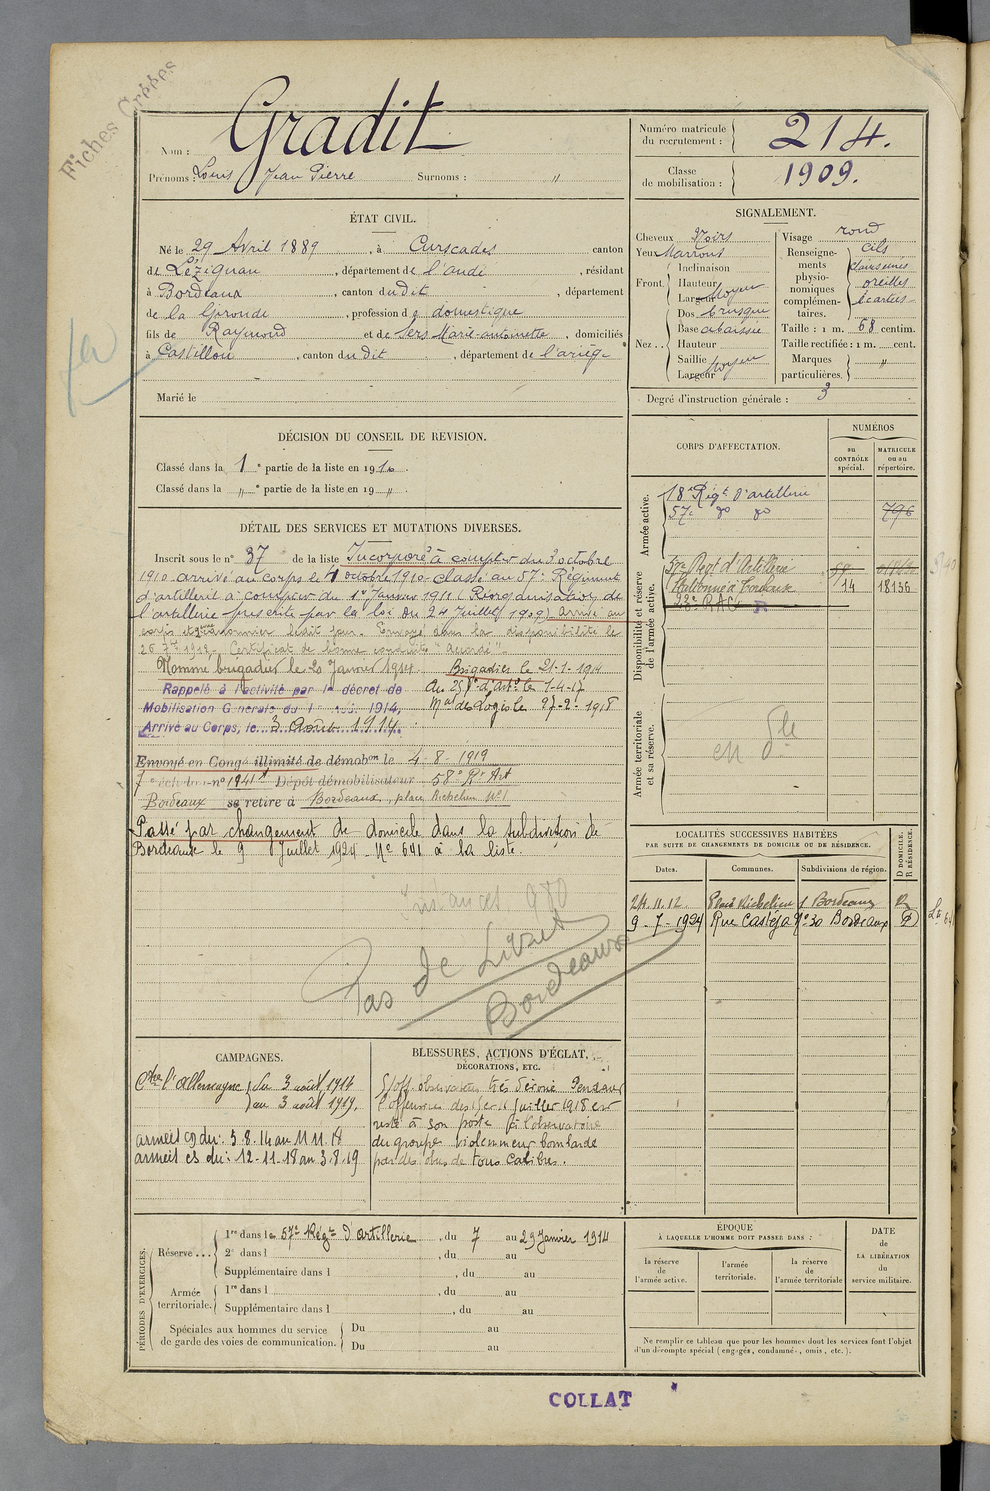 Fiches Créées
Nom : Gradit
Prénoms : Louis Jean Pierre Surnoms : "
Numéro matricule du recrutement : 214.
Classe de mobilisation : 1909.
ÉTAT CIVIL.
Né le 29 Avril 1889, à Cruscades canton
de Lézignan, département de l'aude, résidant
à Bordeaux, canton dudit, département
de la Gironde, profession de domestique
fils de Raymond et de Sers Marie-antoinette, domiciliés
à Castillon, canton dudit, département de l'ariège
Marié le
SIGNALEMENT.
Cheveux Noirs
Yeux Marrons
Front. Inclinaison
Hauteur
Largeur Moyen
Nez.. Dos brusque
Base abaissée
Hauteur
Saillie
Largeur Moyen
Visage rond
Renseignements physionomiques complémentaires. cils clairsemés oreilles écartées
Taille : 1 m. 68 centim.
Taille rectifiée : 1 m. cent.
Marques particulières. "
Degré d'instruction générale : 3
DÉCISION DU CONSEIL DE REVISION.
Classé dans la 1e partie de la liste en 1910.
Classé dans la " e partie de la liste en 19 ".
DÉTAIL DES SERVICES ET MUTATIONS DIVERSES.
Inscrit sous le n° 37 de la liste Incorporé à compter du 3 octobre
1910 arrivé au corps le 4 octobre 1910. classé au 57e Régiment
d'artillerie à compter du 1er Janvier 1911 (Réorganisation de
l'artillerie prescrite par la loi du 24 Juillet 1909) arrivé au
corps et canonnier ledit jour. Envoyé dans la disponibilité le
26 7bre 1912. Certificat de bonne conduite "Accordé".
Nommé brigadier le 20 Janvier 1914. Brigadier le 21-1-1914
Rappelé à l'activité par le décret de
Mobilisation Générale du 1er août 1914,
Arrivé au Corps, le 3 Août 1914.
le 1-4-17
Mal des Logis le 27-2-1918
Envoyé en Congé illimité de démobon le 4-8-1919
7e échelon n° 1941 Dépôt démobilisateur 58e Rt Art
Bordeaux se retire à Bordeaux, place Richelieu n° 1
Passé par changement de domicile dans la subdivision de
Bordeaux le 9 Juillet 1924. N° 641 à la liste.
980
Pas de Livret
Bordeaux
CORPS D'AFFECTATION.
NUMÉROS
au CONTRÔLE spécial.
MATRICULE ou au répertoire.
Armée active.
18e Régt d'artillerie
57e do do 796
Disponibilité et réserve de l'armée active.
57e Regt d'Artillerie
Stationné à Bordeaux 14 18156
28e RAC
Armée territoriale et sa réserve.
en dle
LOCALITÉS SUCCESSIVES HABITÉES
PAR SUITE DE CHANGEMENTS DE DOMICILE OU DE RÉSIDENCE.
Dates. Communes. Subdivisions de région. D DOMICILE. R RÉSIDENCE.
24.11.12. Place Richelieu 1 Bordeaux R
9-7-1924 Rue Castéja N° 30 Bordeaux D
CAMPAGNES.
Ctre l'Allemagne du 3 août 1914
au 3 août 1919.
armées cd du : 3.8.14 au 11.11.18
armées cs du : 12-11-18 au 3.8.19
BLESSURES, ACTIONS D'ÉCLAT,
DÉCORATIONS, ETC.
S/off. observateur très dévoué Pendant
l'offensive des Juillet 1918 est
resté à son poste à l'observatoire
du groupe violemment bombardé
par des obus de tous Calibres.
PÉRIODES D'EXERCICES.
Réserve... 1re dans le 57e Régt d'artillerie, du 7 au 29 Janvier 1914
2e dans l , du au
Supplémentaire dans l , du au
Armée territoriale. 1re dans l , du au
Supplémentaire dans l , du au
Spéciales aux hommes du service de garde des voies de communication. Du au
Du au
ÉPOQUE
À LAQUELLE L'HOMME DOIT PASSER DANS :
la réserve de l'armée active. l'armée territoriale. la réserve de l'armée territoriale
DATE de LA LIBÉRATION du service militaire.
Ne remplir ce tableau que pour les hommes dont les services font l'objet
d'un décompte spécial (engagés, condamnés, omis, etc.).
COLLAT